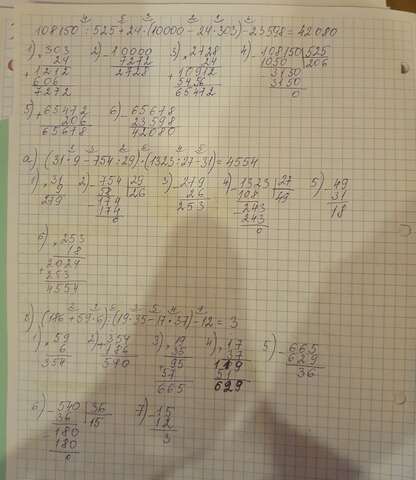 4 5 3 2 1 6
108150 : 525 + 24 · (10000 - 24 · 303) - 23598 = 42080
1) × 303 2) - 10000 3) × 2728 4) - 108150 | 525
24 7272 24 1050 206
+ 1212 2728 + 10912 3150
606 5456 3150
7272 65472 0
5) + 65472 6) - 65678
206 23598
65678 42080
а) (31 · 9 - 754 : 29) · (1323 : 27 - 31) = 4554
1) × 31 2) - 754 | 29 3) - 279 4) - 1323 | 27 5) - 49
9 58 26 26 108 49 31
279 174 253 - 243 18
174 243
0 0
6) × 253
18
+ 2024
253
4554
(186 + 59 · 6) : (19 · 35 - 17 · 37) - 12 = 3
1) × 59 2) + 354 3) × 19 4) × 17 5) - 665
6 186 35 37 629
354 540 95 119 36
57 51
665 629
6) - 540 | 36 7) - 15
36 15 12
- 180 3
180
0